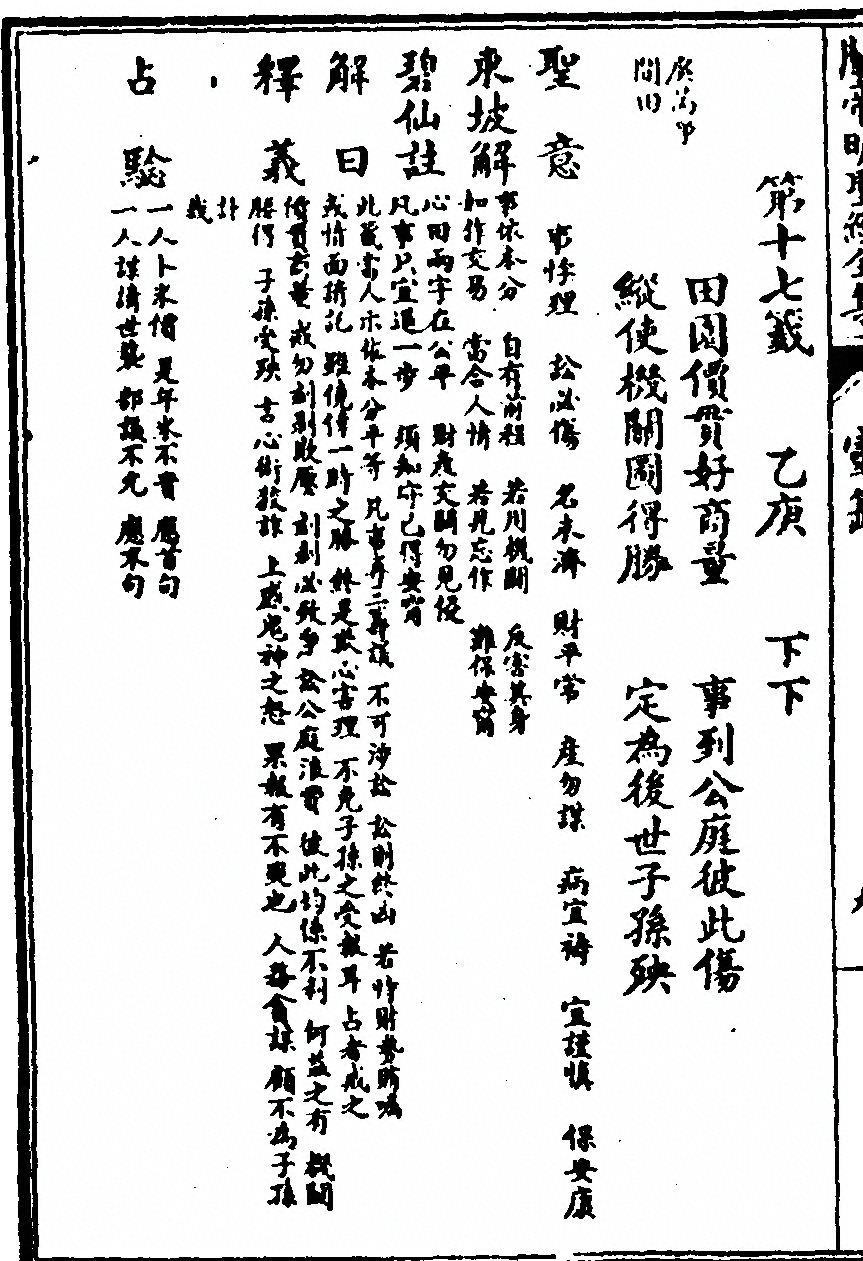 第十七籤 乙庚 下下
田園價貫好商量 事列公庭彼此傷
縱使機關圖得勝 定為後世子孫殃
聖意 事悖理 訟必傷 名未濟 財平常 産勿謀 病宜禱 宜謹慎 保安康
東坡解 事依本分 自有前程 若用機關 反害其身
如作交易 當合人情 若見忘作 難保安甯
碧仙註 心田兩字在公平 財產交關勿見侵
凡事只宜退一步 須知守己得安甯
解曰 此籤當人不依本分平等 凡事再三籌議 不可涉訟 訟則終凶 若恃財勢賄囑
或情面請託 雖僥倖一時之勝 終是欺心害理 不免子孫之受報耳 占者戒之
釋義 價貫商量 戒勿刻剥欺壓 刻剥必致爭訟公庭浪費 彼此均係不利 何益之有 機關
勝得 子孫受殃 言心術狡詐 上惑鬼神之怒 果報有不爽也 人務貪謀 顧不為子孫
計
哉
占驗 一人卜米價 是年米不貴 應首句
一人謀繼世襲 部議不允 應末句